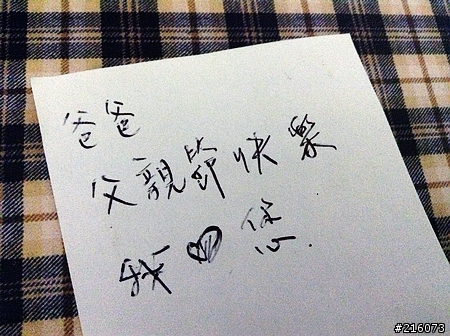 爸爸
父親節快樂
我♥您.
#216073